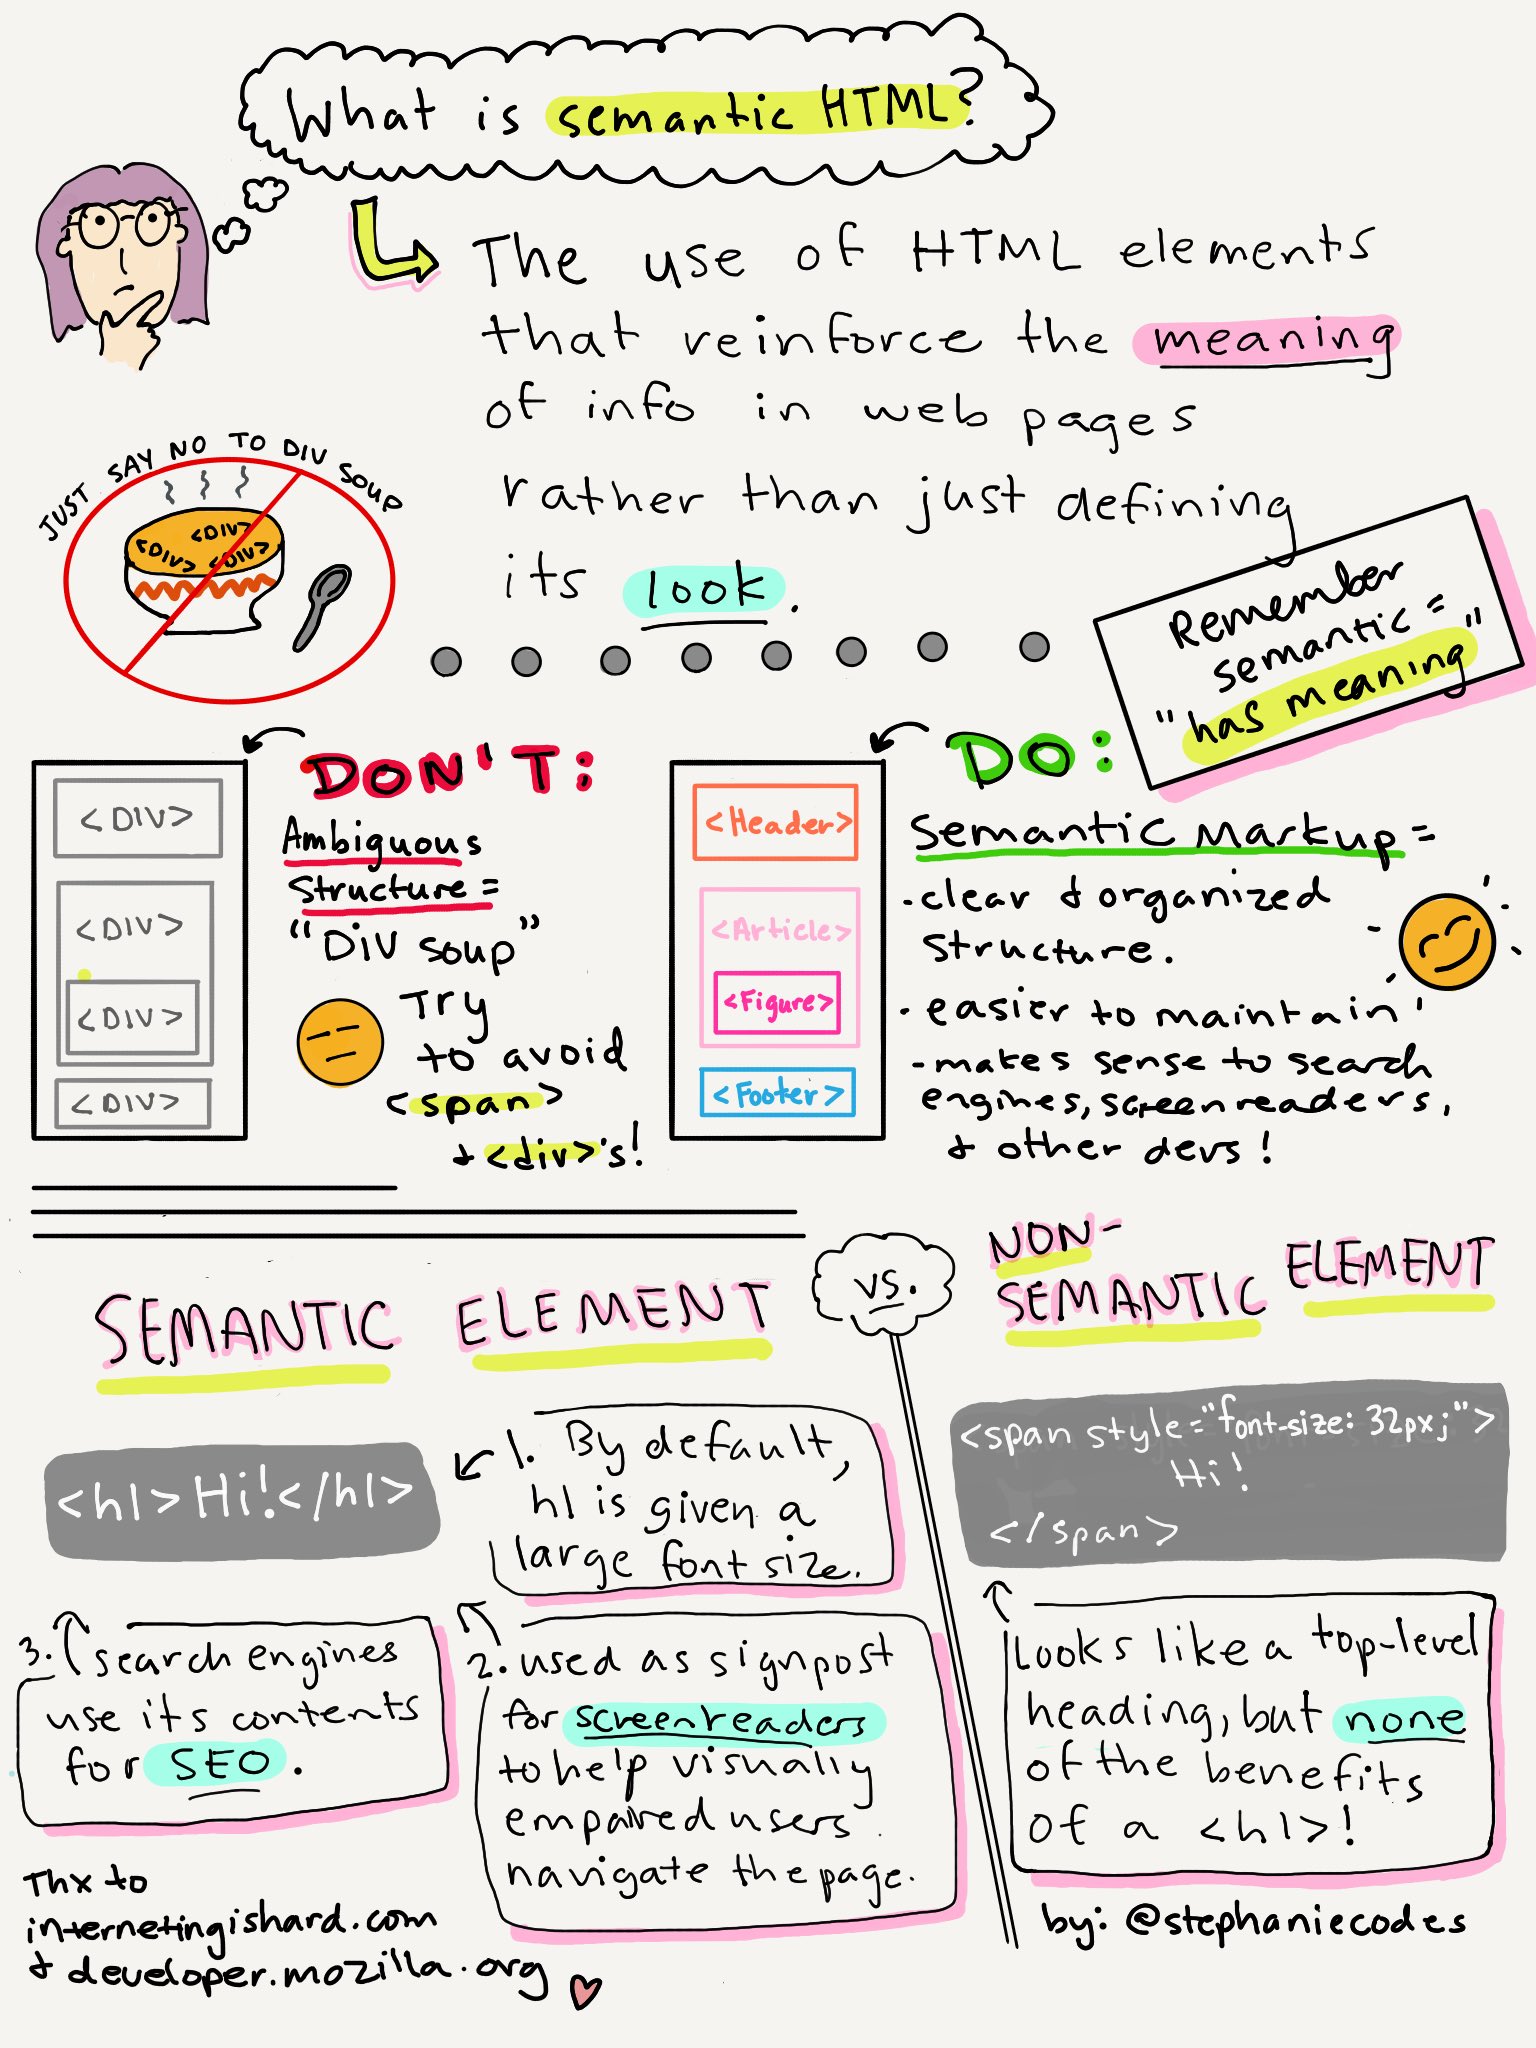 What is semantic HTML?
The use of HTML elements
that reinforce the meaning
of info in web pages
rather than just defining
its look.
JUST SAY NO TO DIV SOUP
<DIV>
<DIV> <DIV>
Remember
semantic =
"has meaning"
DON'T:
<DIV>
<DIV>
<DIV>
<DIV>
Ambiguous
Structure =
"Div soup"
Try
to avoid
<span>
& <div>'s!
DO:
<Header>
<Article>
<Figure>
<Footer>
Semantic Markup =
- clear & organized
structure.
- easier to maintain
- makes sense to search
engines, screenreaders,
& other devs!
SEMANTIC ELEMENT
vs.
NON-
SEMANTIC ELEMENT
<h1>Hi!</h1>
1. By default,
h1 is given a
large font size.
2. used as signpost
for screenreaders
to help visually
empaired users
navigate the page.
3. search engines
use its contents
for SEO.
<span style="font-size: 32px;">
Hi!
</span>
Looks like a top-level
heading, but none
of the benefits
of a <h1>!
Thx to
internetingishard.com
& developer.mozilla.org
by: @stephaniecodes